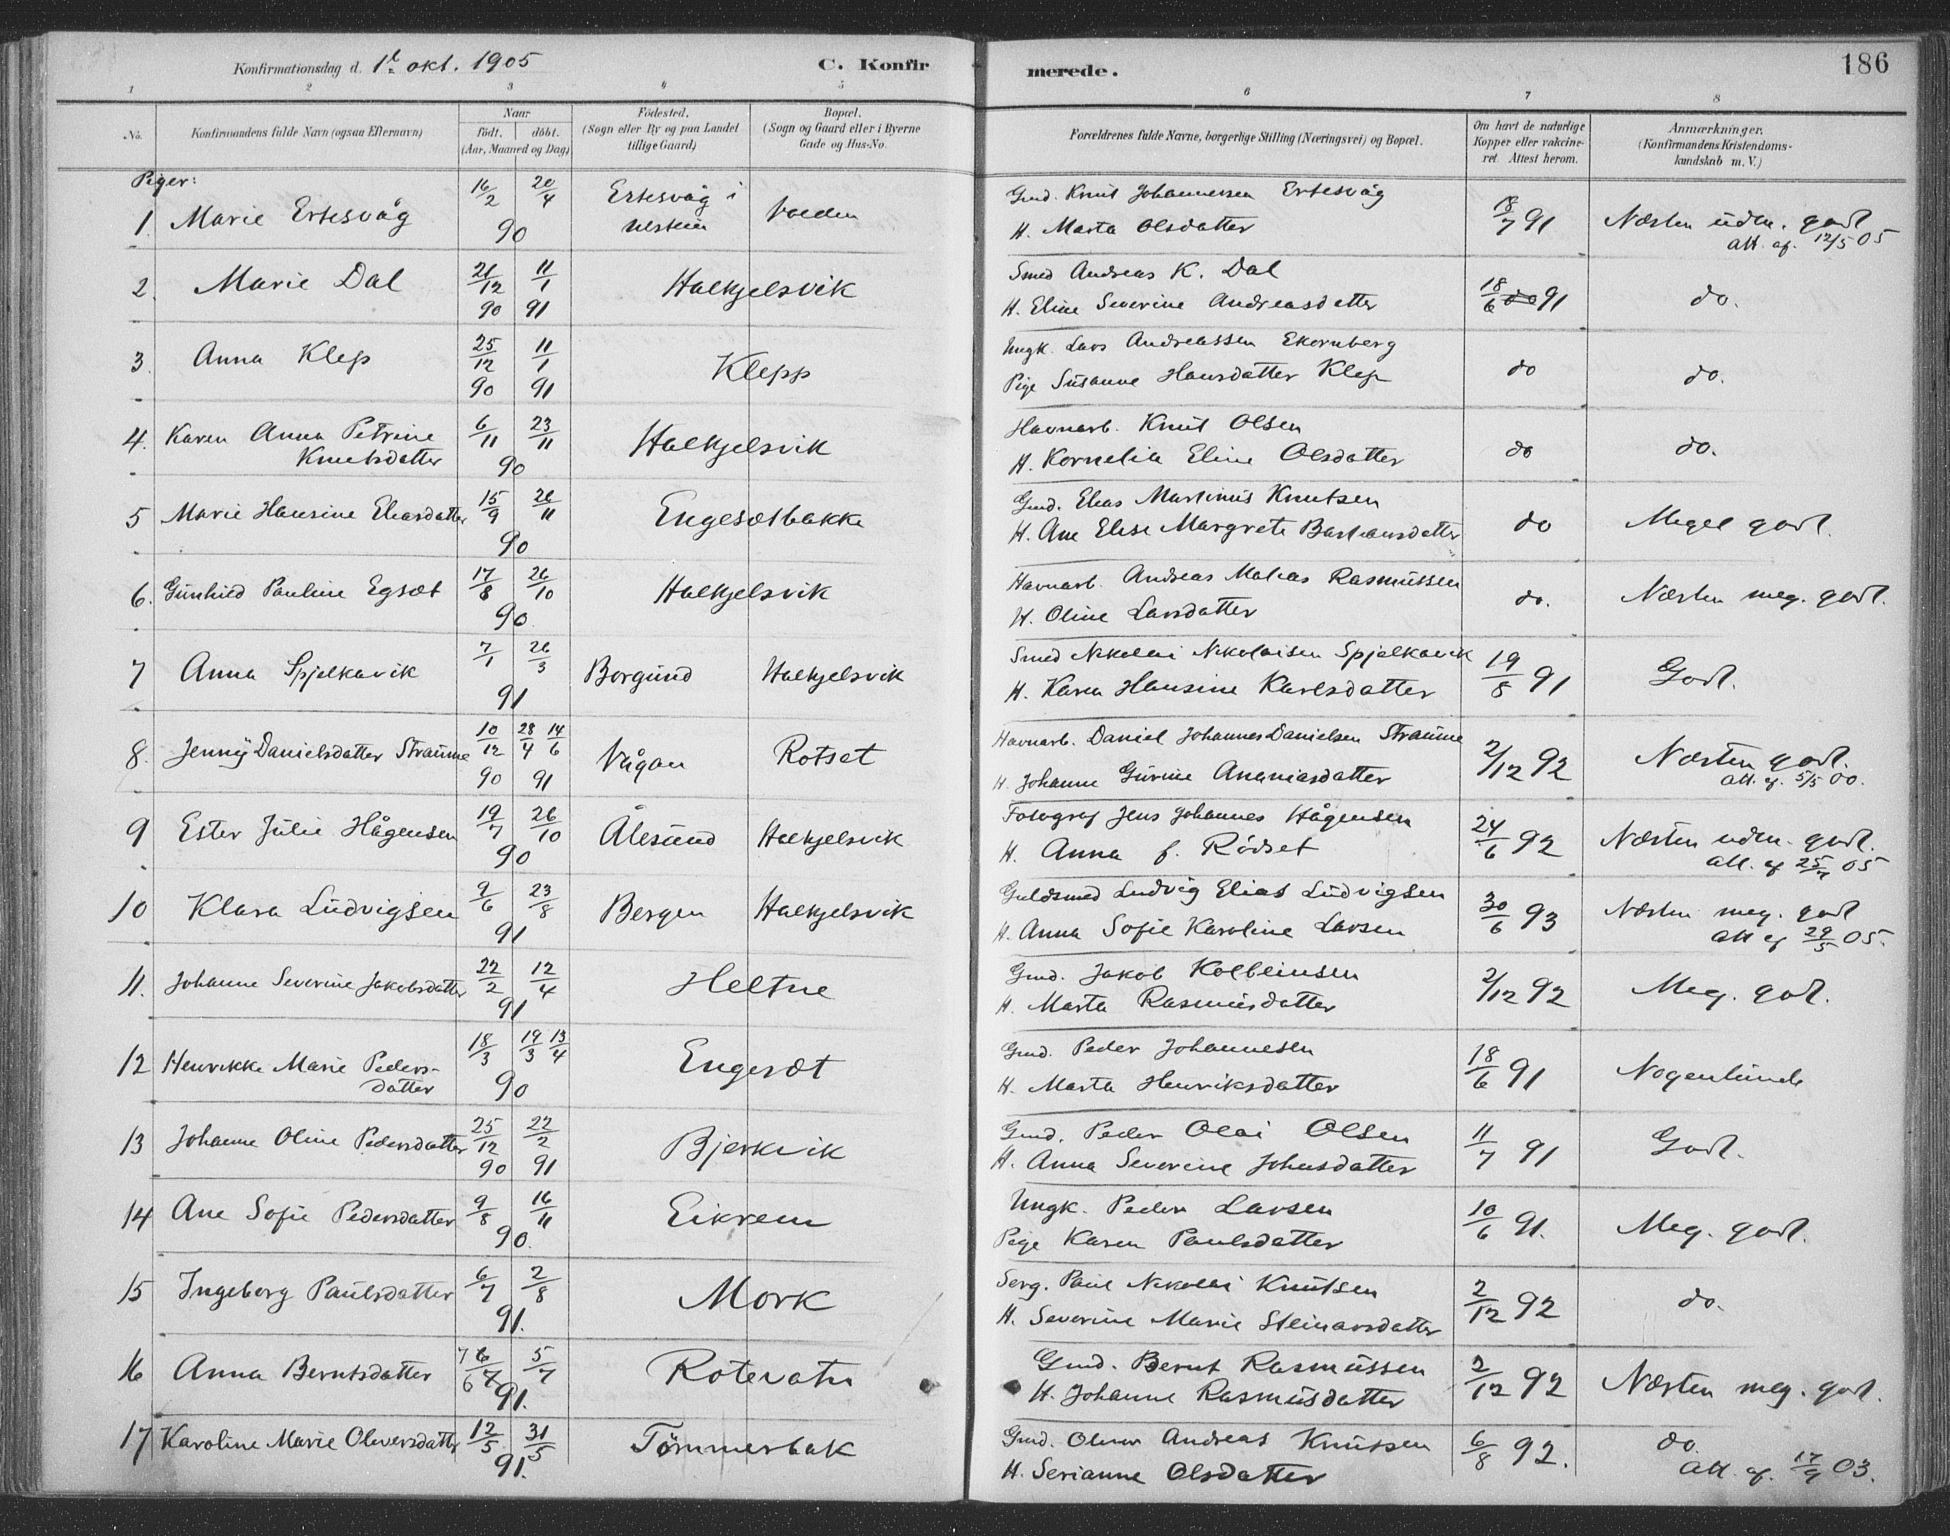 Konfirmationsdag d. 1ste okt. 1905 C. Konfirmerede. 186
1 2 3 4 5 6 7 8
No. Konfirmandens fulde Navn (ogsaa Efternavn) Naar født. døbt. (Aar, Maaned og Dag) Fødested. (Sogn eller By og paa Landet tillige Gaard) Bopæl. (Sogn og Gaard eller i Byerne Gade og Hus-No. Forældrenes fulde Navne, borgerlige Stilling (Næringsvei) og Bopæl. Om havt de naturlige Kopper eller vakcineret. Attest herom. Anmærkninger. (Konfirmandens Kristendomskundskab m. V.)
Piger:
1 Marie Ertesvåg 16/2 20/4 90 Ertesvåg i Ulstein Volden Gmd. Knut Johannessen Ertesvåg 18/7 91 Næsten udm. godt
H. Marta Olsdatter att. af. 12/5 05
2. Marie Dal 21/12 90 11/1 91 Halkjelsvik Smed Andreas K. Dal 18/6 91 do.
H. Eline Severine Andreasdatter
3 Anna Klep 25/12 90 11/1 91 Klepp Ungk. Lars Andreassen Ekornberg do do.
Pige Susanne Hansdatter Klep
4. Karen Anna Petrine Knutsdatter 6/11 23/11 90 Halkjelsvik Havnarb. Knut Olsen do do.
H. Kornelia Eline Olsdatter
5 Marie Hansine Eliasdatter 15/9 26/11 90 Engesætbakke Gmd. Elias Martinus Knutsen do Meget godt.
H. Ane Elise Margrete Bastiansdatter
6. Gunhild Pauline Egsæt 17/8 26/10 90 Halkjelsvik Havnarb. Andreas Matias Rasmussen do. Næsten meg. godt.
H. Oline Larsdatter
7 Anna Spjelkavik 7/1 26/3 91 Borgund Halkjelsvik Smed Nikolai Nikolaisen Spjelkavik 19/8 91 Godt.
H. Karen Hansine Karlsdatter
8. Jenny Danielsdatter Straume 10/12 90 28/4 14/6 91 Vågan Rotset Havnarb. Daniel Johannes Danielsen Straume 2/12 92 Næsten godt.
H. Johanne Gurine Ananiasdatter att. af. 5/5 00.
9 Ester Julie Hågensen 19/7 26/10 90 Ålesund Halkjelsvik Fotograf Jens Johannes Hågensen 24/6 92 Næsten udm. godt.
H. Anna f. Rødset att. af 05
10 Klara Ludvigsen 9/6 23/8 91 Bergen Halkjelsvik Guldsmed Ludvig Elias Ludvigsen 30/6 93 Næsten meg. godt
H. Anna Sofie Karoline Larsen att af 29/5 05.
11. Johanne Severine Jakobsdatter 22/2 12/4 91 Heltne Gmd. Jakob Kolbeinsen 2/12 92 Meg. godt.
H. Marta Rasmusdatter
12 Henrikke Marie Pedersdatter 18/3 19/3 13/4 90 Engesæt Gmd. Peder Johannesen 18/6 91 Nogenlunde
H. Marta Henriksdatter
13 Johanne Oline Pedersdatter 25/12 90 22/2 91 Bjerkvik Gmd. Peder Olai Olsen 11/7 91 Godt.
H. Anna Severine Johnsdatter
14 Ane Sofie Pedersdatter 9/8 16/11 90. Eikrem Ungk. Peder Larsen 10/6 91. Meg. godt.
Pige Karen Paulsdatter
15 Ingeborg Paulsdatter 6/7 2/8 91. Mork Serg. Paul Nikolai Knutsen 2/12 92 do.
H. Severine Marie Steinarsdatter
16 Anna Berntsdatter 5/7 91. Rotevatn Gmd. Bernt Rasmussen 2/12 92 Næsten meg. godt.
H. Johanne Rasmusdatter
17 Karoline Marie Oliversdatter 12/5 31/5 91. Tømmerbak Gmd. Oliver Andreas Knutsen 6/8 92. do.
H. Serianne Olsdatter Att. af. 17/9 03.